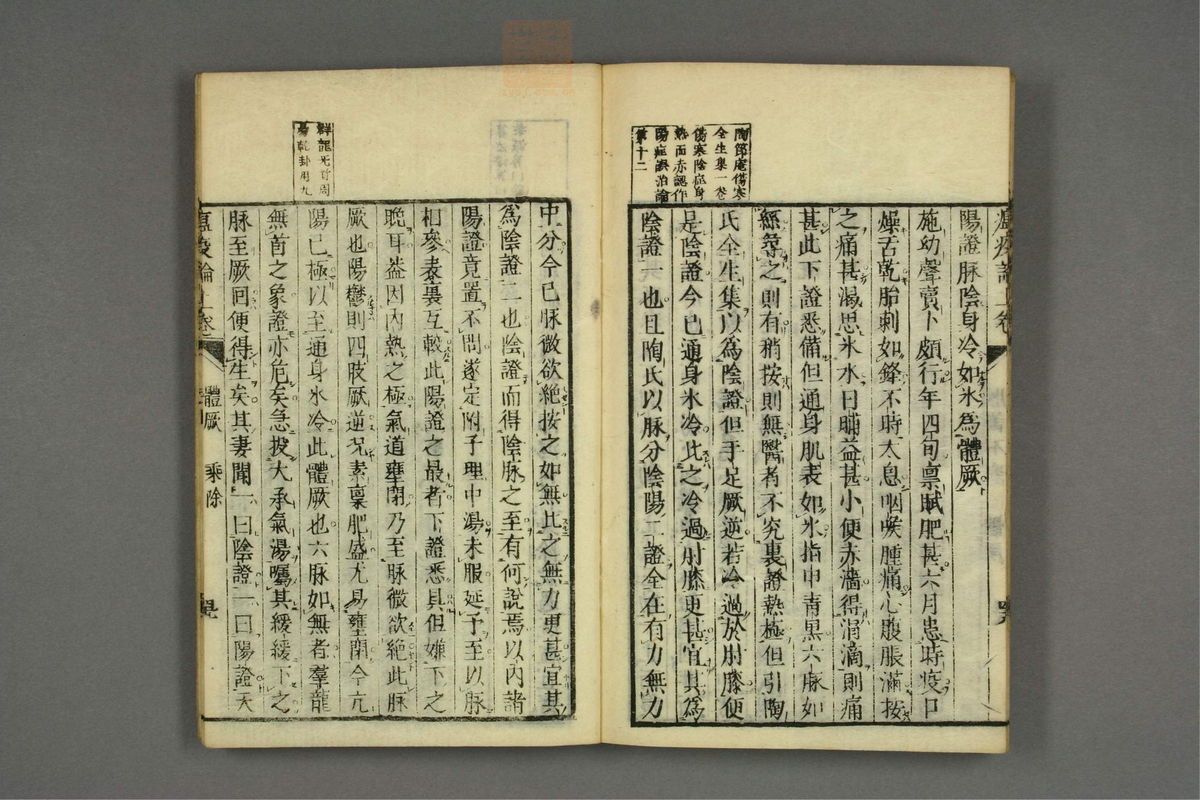 陶節庵傷寒
全生集一卷
傷寒陰症身
熱面赤認作
陽症誤治論
第十二
陽證脉陰身冷如氷爲體厥
施幼聲賣卜頗行年四旬禀賦肥甚六月患時疫口
燥舌乾胎刺如鋒不時太息咽喉腫痛心腹脹滿按
之痛甚渴思氷水日晡益甚小便赤濇得涓滴則痛
甚此下證悉備但通身肌表如氷指甲青黒六脉如
絲尋之則有稍按則無醫者不究裏證熱極但引陶
氏全生集以爲陰證但手足厥逆若冷過於肘膝便
是陰證今已通身氷冷比之冷過肘膝更甚宜其爲
陰證一也且陶氏以脉分陰陽二證全在有力無力
群龍无首周
易乾卦用九
中分今已脉微欲絶按之如無比之無力更甚宜其
爲陰證二也陰證而得陰脉之至有何説焉以内諸
陽證竟置不問遂定附子理中湯未服延予至以脉
相參表裏互較此陽證之最者下證悉具但嫌下之
晩耳葢因内熱之極氣道壅閉乃至脉微欲絶此脉
厥也陽鬱則四肢厥逆况素禀肥盛尤易壅閉今亢
陽已極以至通身氷冷此體厥也六脉如無者羣龍
無首之象證亦危矣急投大承氣湯囑其緩緩下之
脉至厥回便得生矣其妻聞一曰陰證一曰陽證天
温疫論上卷
體厥
乘除